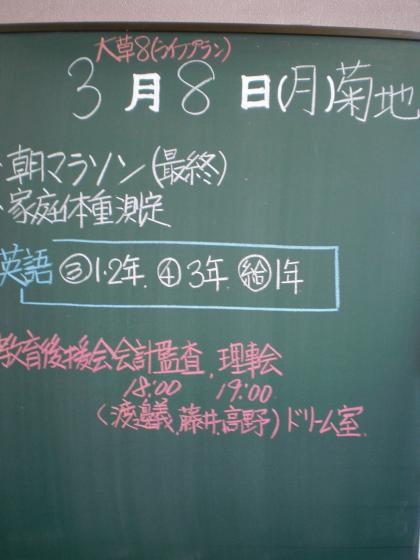 大草8(ライフプラン)
3月8日(月)菊地
・朝マラソン(最終)
・家庭体重測定
英語 ③1・2年 ④3年 ㊡1年
教育後援会会計監査、理事会
18:00 19:00
(渡邉義、藤井、高野)ドリーム室